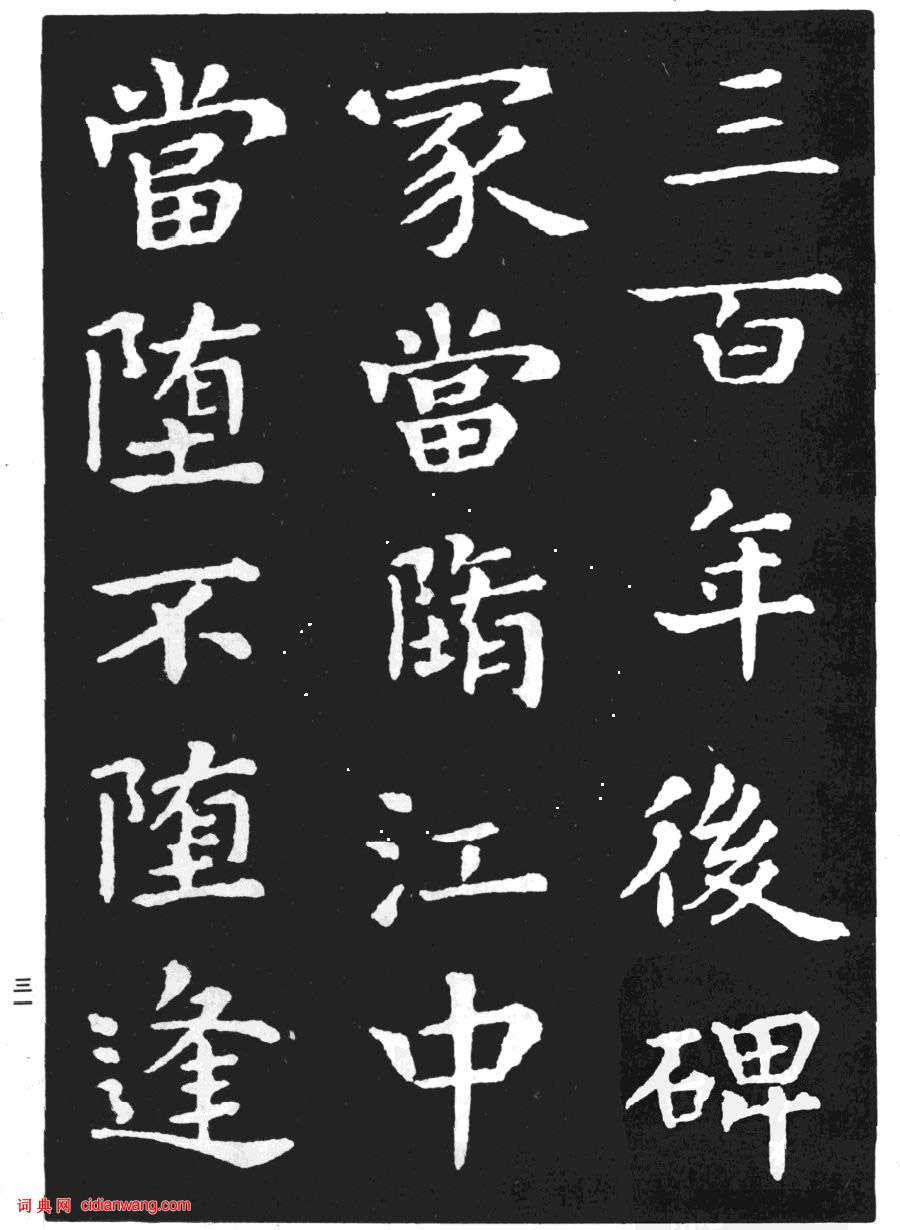 三百年後碑
冢當隋江中
當堕不堕逢
三一
词典网 cidianwang.com